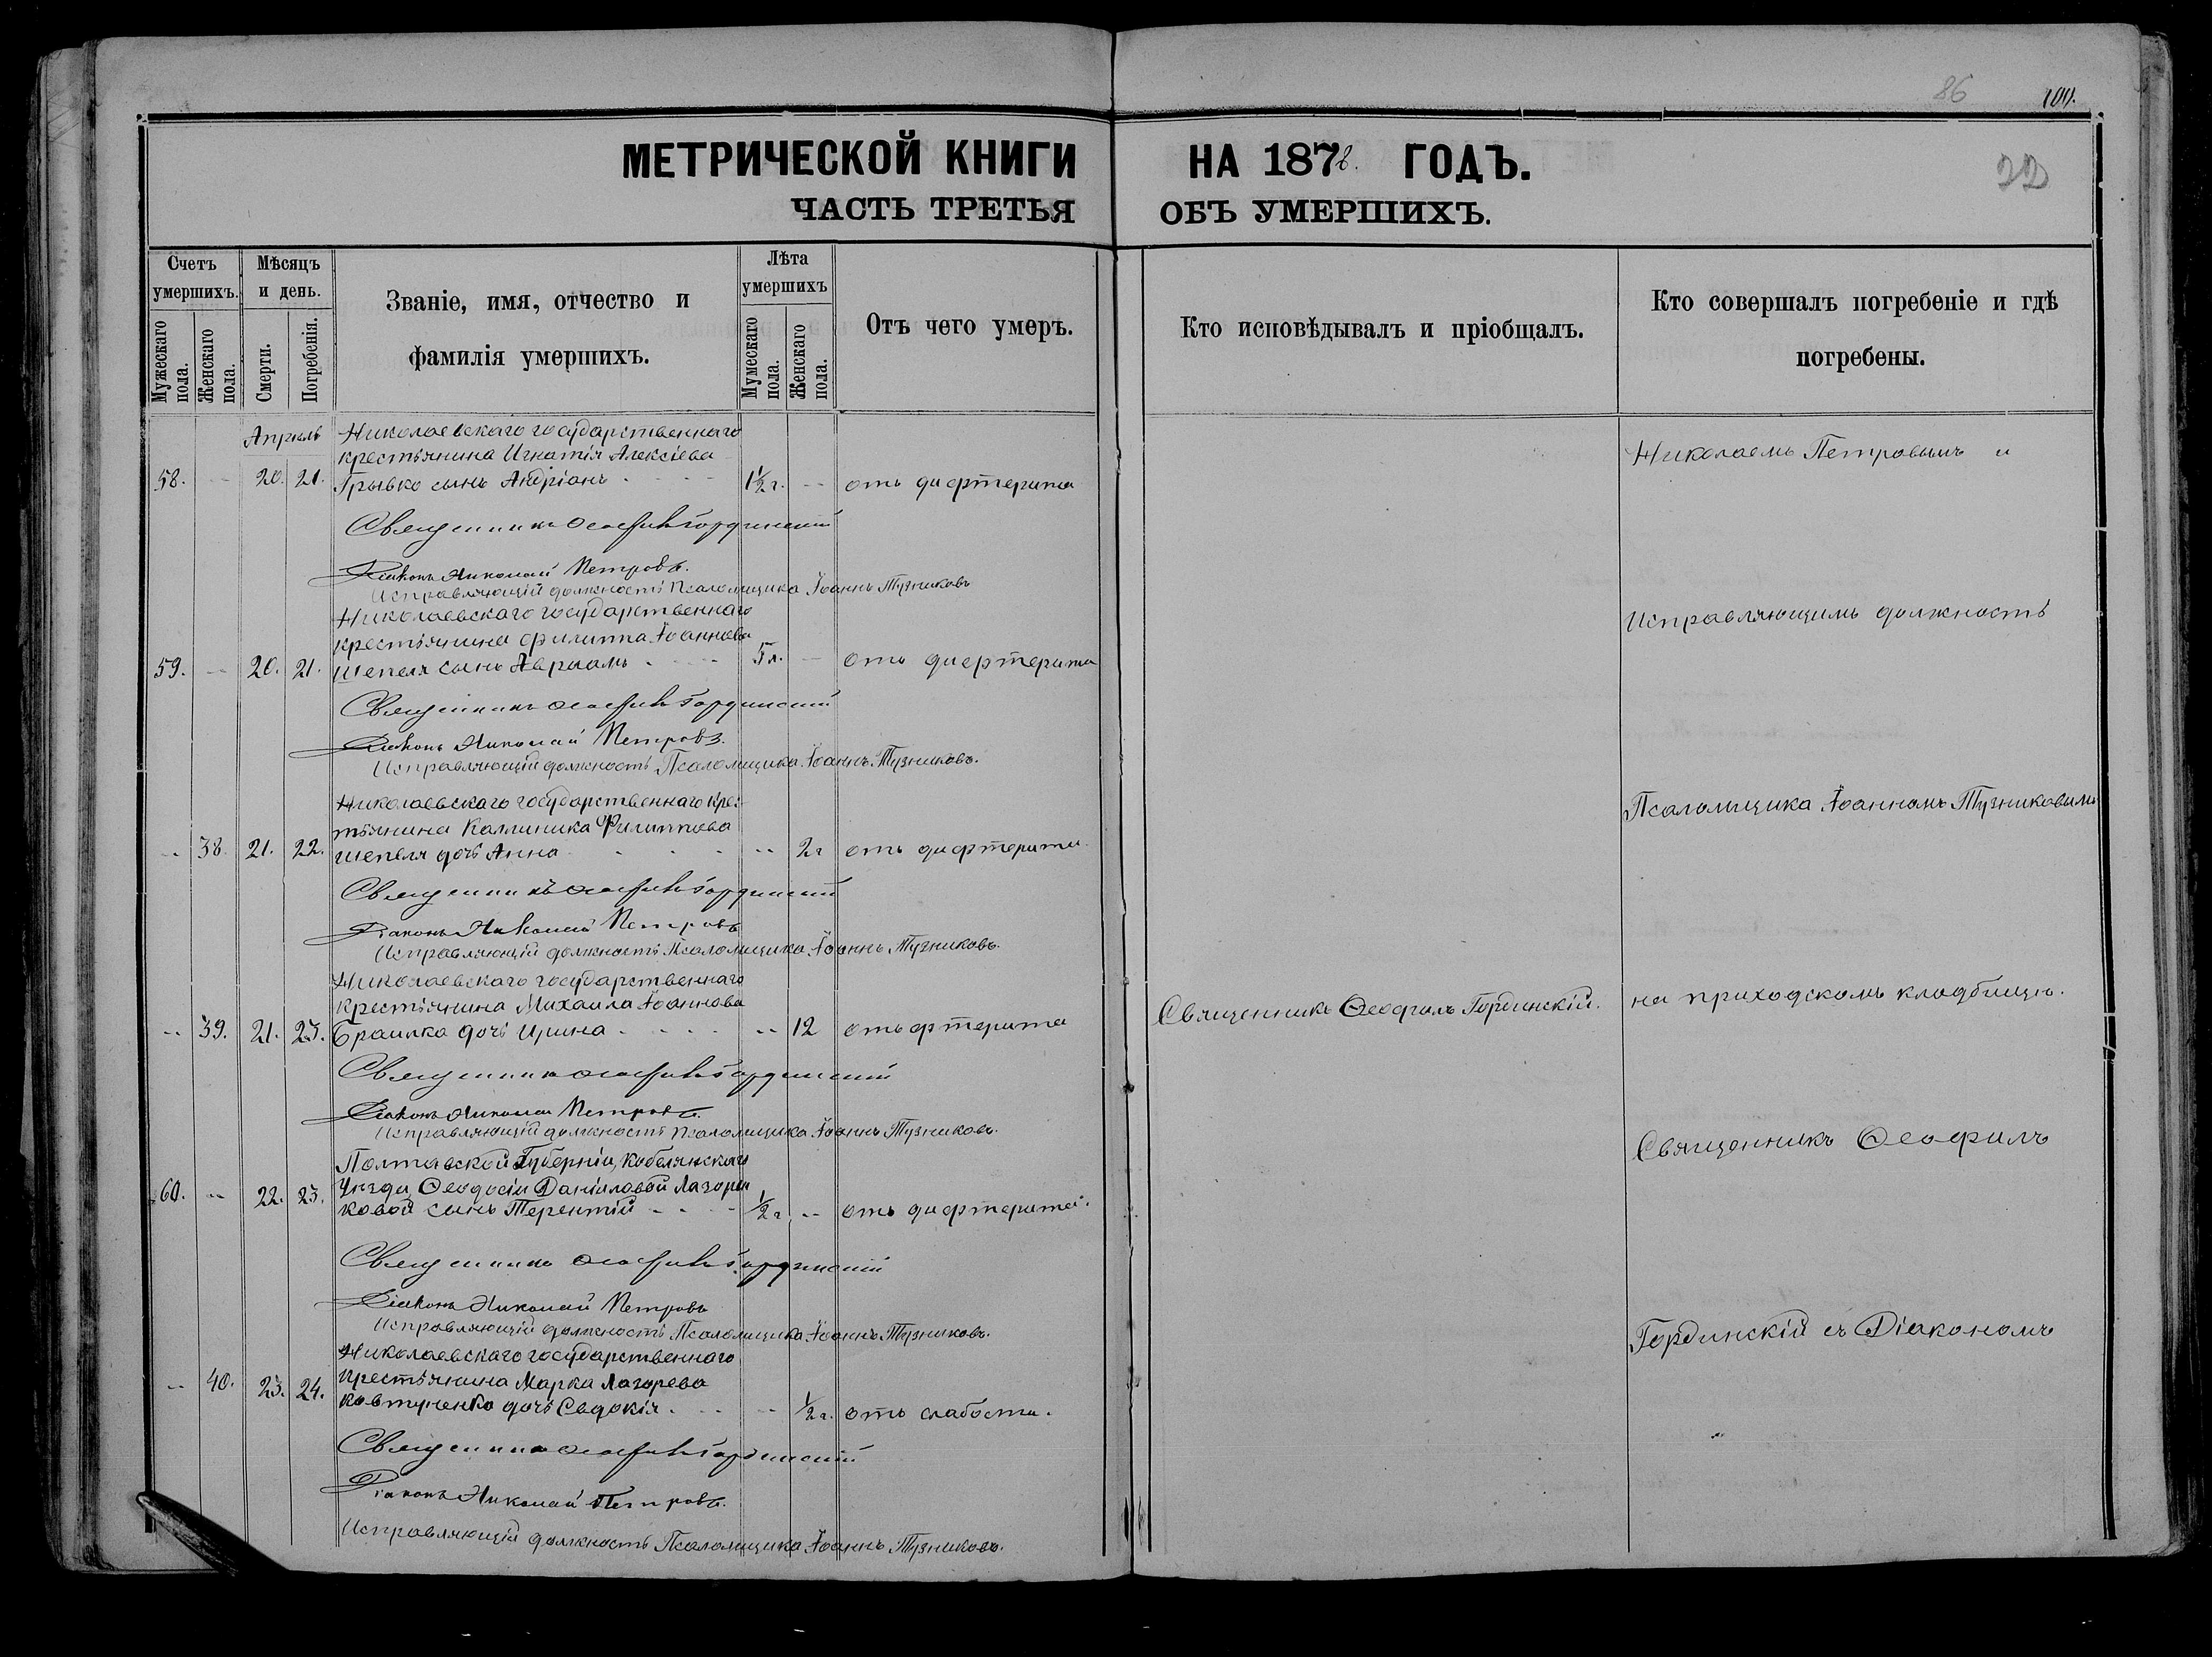 86 100.
МЕТРИЧЕСКОЙ КНИГИ НА 187 ГОДЪ.
22
ЧАСТЬ ТРЕТЬЯ ОБЪ УМЕРШИХЪ.
Счетъ умершихъ.
Мужескаго пола.
Женскаго пола.
Мѣсяцъ и день.
Смерти.
Погребенія.
Званіе, имя, отчество и
фамилія умершихъ.
Лѣта умершихъ
Мужескаго пола.
Женскаго пола.
Отъ чего умеръ.
Кто исповѣдывалъ и пріобщалъ.
Кто совершалъ погребеніе и гдѣ
погребены.
Апрель Николаевскаго государственнаго
крестьянина Игнатія Алексіева
58. -- 20. 21. Грывко сынъ Андріанъ 1½ г. -- отъ дифтерита
Священникъ Ѳеофилъ Гординскій
Діаконъ Николай Петровъ.
Исправляющій должность Псаломщика Іоаннъ Тузниковъ
Николаевскаго государственнаго
крестьянина Филиппа Іоаннова
59. -- 20. 21. Шепеля сынъ Авраамъ 5 л. -- отъ дифтерита
Священникъ Ѳеофилъ Гординскій
Діаконъ Николай Петровъ.
Исправляющій должность Псаломщика Іоаннъ Тузниковъ.
Николаевскаго государственнаго крес-
тьянина Каллиника Филиппова
-- 38. 21. 22. Шепеля дочь Анна -- 2 г отъ дифтерита
Священникъ Ѳеофилъ Гординскій
Діаконъ Николай Петровъ
Исправляющій должность Псаломщика Іоаннъ Тузниковъ.
Николаевскаго государственнаго
крестьянина Михаила Іоаннова
-- 39. 21. 23. Браилка дочь Ирина -- 12 отъ фтерита
Священникъ Ѳеофилъ Гординскій
Діаконъ Николай Петровъ.
Исправляющій должность Псаломщика Іоаннъ Тузниковъ.
Полтавской Губерніи, Кобелянскаго
60. -- 22. 23. Уезда Ѳеодосіи Даніиловой Лазорен
ковой сынъ Терентій ½ г. -- отъ дифтерита.
Священникъ Ѳеофилъ Гординскій
Діаконъ Николай Петровъ
Исправляющій должность Псаломщика Іоаннъ Тузниковъ.
Николаевскаго государственнаго
-- 40. 23. 24. крестьянина Марка Лазорева
Ковтуненко дочь Евдокія -- ½ г. отъ слабости.
Священникъ Ѳеофилъ Гординскій
Діаконъ Николай Петровъ.
Исправляющій должность Псаломщика Іоаннъ Тузниковъ.
Священникъ Ѳеофилъ Гординскій.
Николаемъ Петровымъ и
Исправляющимъ должность
Псаломщика Іоанномъ Тузниковымъ
на приходскомъ кладбищѣ.
Священникъ Ѳеофилъ
Гординскій съ Діакономъ